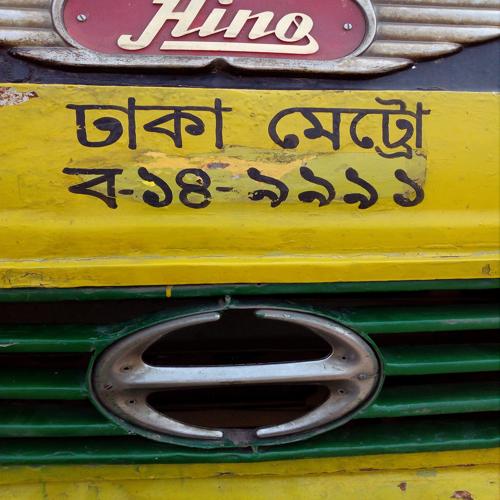 Hino
ঢাকা মেট্রো
ব-১৪-৯৯৯১